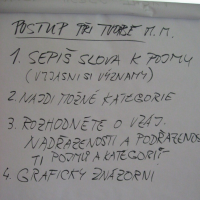 POSTUP PŘI TVORBĚ M.M.
1. SEPIŠ SLOVA K POJMU
(VYJASNI SI VÝZNAMY)
2. NAJDI MOŽNÉ KATEGORIE
3. ROZHODNĚTE O VZÁJ.
NADŘAZENOSTI A PODŘAZENOS
TI POJMŮ A KATEGORIÍ
4. GRAFICKY ZNÁZORNI